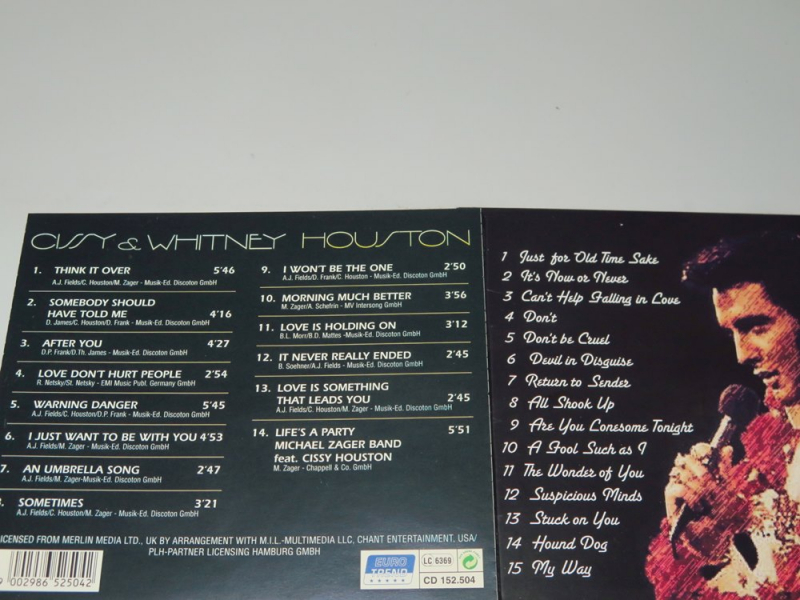 CISSY & WHITNEY HOUSTON
1. THINK IT OVER 5'46
A.J. Fields/C. Houston/M. Zager - Musik-Ed. Discoton GmbH
2. SOMEBODY SHOULD
HAVE TOLD ME 4'16
D. James/C. Houston/D. Frank - Musik-Ed. Discoton GmbH
3. AFTER YOU 4'27
D.P. Frank/D.Th. James - Musik-Ed. Discoton GmbH
4. LOVE DON'T HURT PEOPLE 2'54
R. Netsky/St. Netsky - EMI Music Publ. Germany GmbH
5. WARNING DANGER 5'45
A.J. Fields/C. Houston/D.P. Frank - Musik-Ed. Discoton GmbH
6. I JUST WANT TO BE WITH YOU 4'53
A.J. Fields/M. Zager - Musik-Ed. Discoton GmbH
7. AN UMBRELLA SONG 2'47
A.J. Fields/M. Zager-Musik-Ed. Discoton GmbH
SOMETIMES 3'21
A.J. Fields/C. Houston/M. Zager - Musik-Ed. Discoton GmbH
9. I WON'T BE THE ONE 2'50
A.J. Fields/D. Frank/C. Houston - Musik-Ed. Discoton GmbH
10. MORNING MUCH BETTER 3'56
M. Zager/A. Schefrin - MV Intersong GmbH
11. LOVE IS HOLDING ON 3'12
B.L. Morr/B.D. Mattes -Musik-Ed. Discoton GmbH
12. IT NEVER REALLY ENDED 2'45
B. Soehner/A.J. Fields - Musik-Ed. Discoton GmbH
13. LOVE IS SOMETHING
THAT LEADS YOU 2'45
A.J. Fields/C. Houston/M. Zager - Musik-Ed. Discoton GmbH
14. LIFE'S A PARTY 5'51
MICHAEL ZAGER BAND
feat. CISSY HOUSTON
M. Zager - Chappell & Co. GmbH
LICENSED FROM MERLIN MEDIA LTD., UK BY ARRANGEMENT WITH M.I.L.-MULTIMEDIA LLC, CHANT ENTERTAINMENT, USA/
PLH-PARTNER LICENSING HAMBURG GMBH
9 002986 525042
EURO
TREND
LC 6369
CD 152.504
1 Just for Old Time Sake
2 It's Now or Never
3 Can't Help Falling in Love
4 Don't
5 Don't be Cruel
6 Devil in Disguise
7 Return to Sender
8 All Shook Up
9 Are You Lonesome Tonight
10 A Fool Such as I
11 The Wonder of You
12 Suspicious Minds
13 Stuck on You
14 Hound Dog
15 My Way